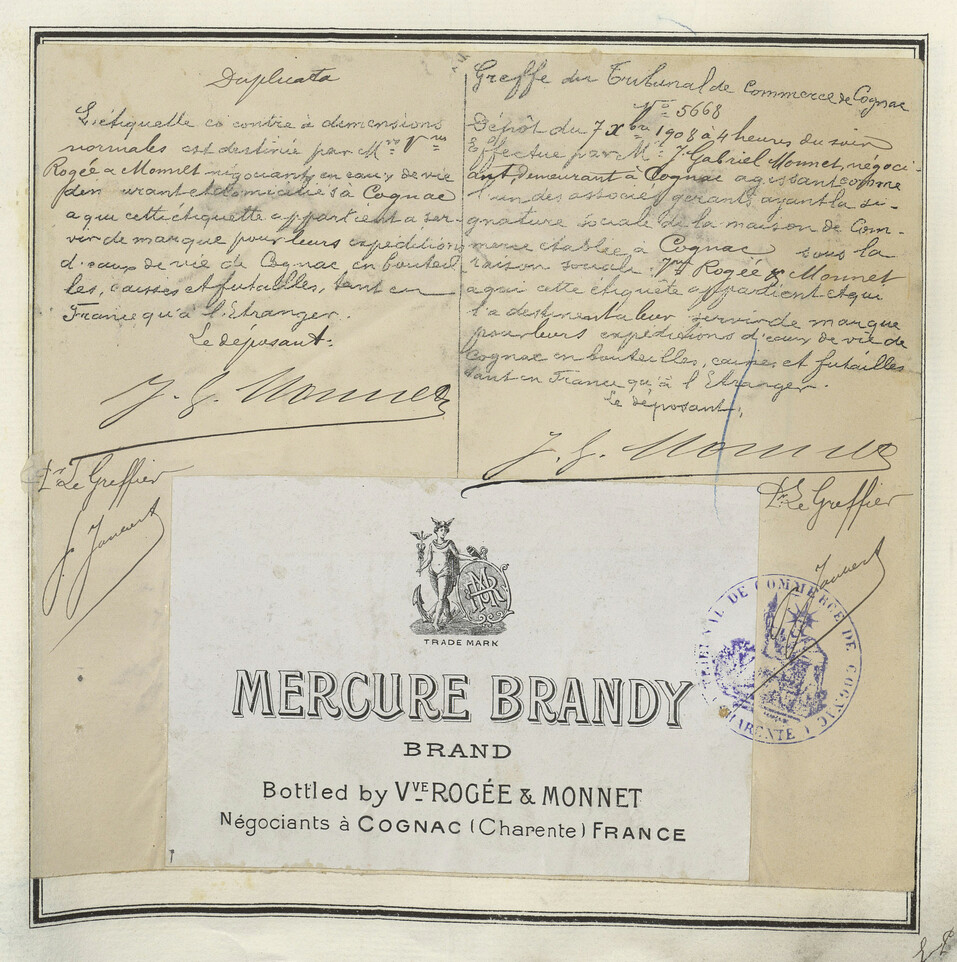 Duplicata
L'étiquette ci contre à dimensions
normales est destinée par Mrs Vve
Rogée & Monnet négociants en eaux de vie
demeurant et domiciliés à Cognac
a qui cette étiquette appartient à ser-
vir de marque pour leurs expéditions
d'eaux de vie de Cognac en bouteil-
les, caisses et futailles, tant en
France qu'à l'Etranger.
Le déposant:
J. G. Monnet
Pr Le Greffier
Greffe du Tribunal de Commerce de Cognac
No 5668
Dépôt du 7 Xbre 1908 à 4 heures du soir
Effectué par M. J. Gabriel Monnet, négoci-
ant, demeurant à Cognac agissant comme
l'un des associés gérants ayant la si-
gnature sociale de la maison de Com-
merce etablie à Cognac sous la
raison sociale Vve Rogée & Monnet
a qui cette étiquête appartient et qui
l'a destinent a leur servir de marque
pour leurs expéditions d'eaux de vie de
Cognac en bouteilles, caisses et futailles
tant en France qu'à l'Etranger.
Le déposant,
J. G. Monnet
Pr Le Greffier
TRIBUNAL DE COMMERCE DE COGNAC
(CHARENTE)
MR
TRADE MARK
MERCURE BRANDY
BRAND
Bottled by VVE ROGÉE & MONNET
Négociants à COGNAC (Charente) FRANCE